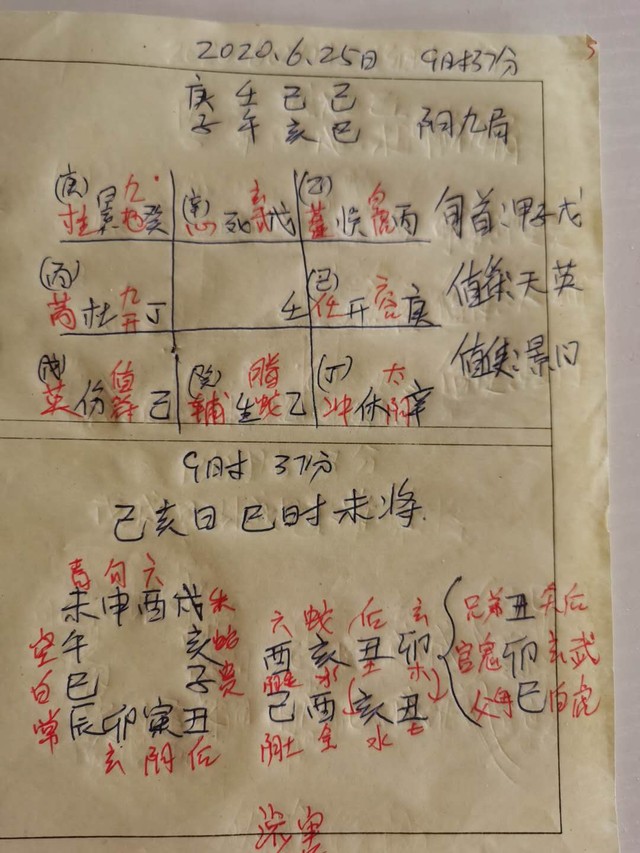 5
2020.6.25日 9时37分
庚 壬 己 己
子 午 亥 巳 阳九局
(庚) 九 (辛) 玄 (乙) 白
柱 景 地 癸 心 死 武 戊 蓬 惊 虎 丙 旬首:甲子戊
(丙) 九 (己) 六
芮 杜 天 丁 壬 任 开 合 庚 值符:天英
值使:景门
(戊) 值 (癸) 腾 (丁) 太
英 伤 符 己 辅 生 蛇 乙 冲 休 阴 辛
9时 37分
己亥日 巳时 未将
青 勾 六
未 申 酉 戌 朱
空 午 亥 蛇
白 巳 子 贵
常 辰 卯 寅 丑
玄 阴 后
六 蛇 后 玄
酉 亥 丑 卯
水 土 木
己 酉 (亥 丑)
阴土 金 水 土
兄弟 丑 后
官鬼 卯 玄武
父母 巳 白虎